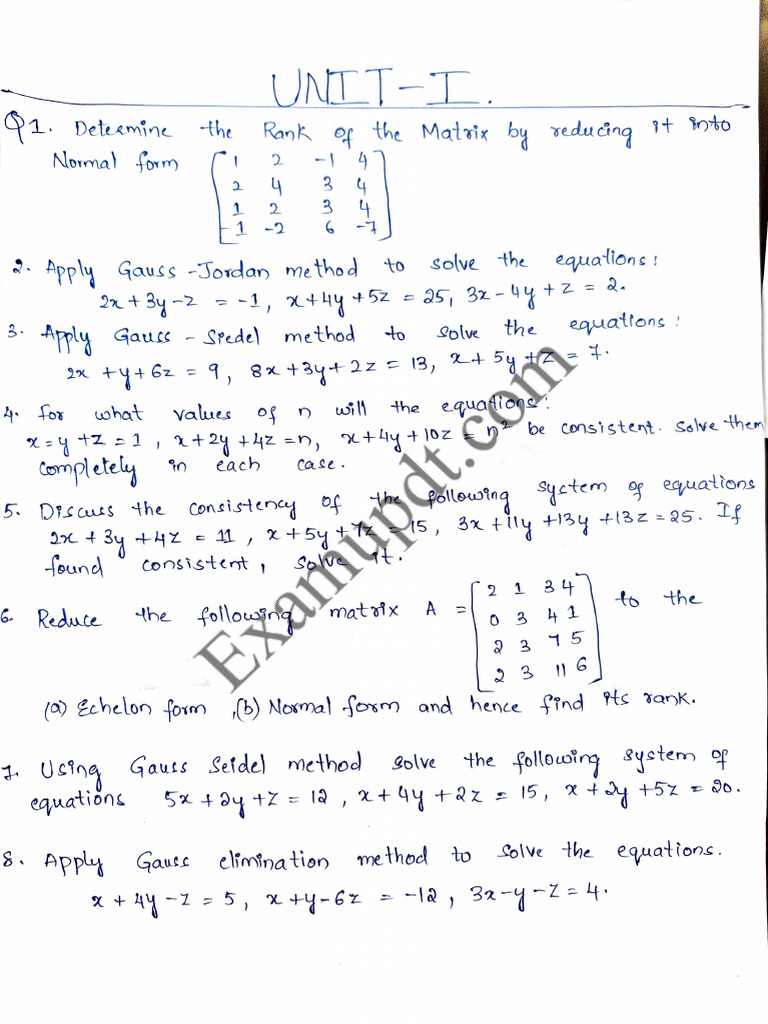 UNIT-I.
Q1. Determine the Rank of the Matrix by reducing it into
Normal form
1 2 -1 4
2 4 3 4
1 2 3 4
-1 -2 6 -7
2. Apply Gauss-Jordan method to solve the equations:
2x+3y-z = -1, x+4y+5z = 25, 3x-4y+z = 2.
3. Apply Gauss-Siedel method to solve the equations:
2x+y+6z = 9, 8x+3y+2z = 13, x+5y+z = 7.
4. for what values of n will the equations:
x=y+z=1, x+2y+4z=n, x+4y+10z = n² be consistent. Solve them
completely in each case.
5. Discuss the consistency of the following system of equations
2x+3y+4z = 11, x+5y+7z = 15, 3x+11y+13y+13z=25. If
found consistent, solve it.
6. Reduce the following matrix A = to the
2 1 3 4
0 3 4 1
2 3 7 5
2 3 11 6
(a) Echelon form, (b) Normal form and hence find its rank.
7. Using Gauss Seidel method solve the following system of
equations 5x+2y+z = 12, x+4y+2z = 15, x+2y+5z = 20.
8. Apply Gauss elimination method to solve the equations.
x+4y-z = 5, x+y-6z = -12, 3x-y-z=4.
Examupdt.com